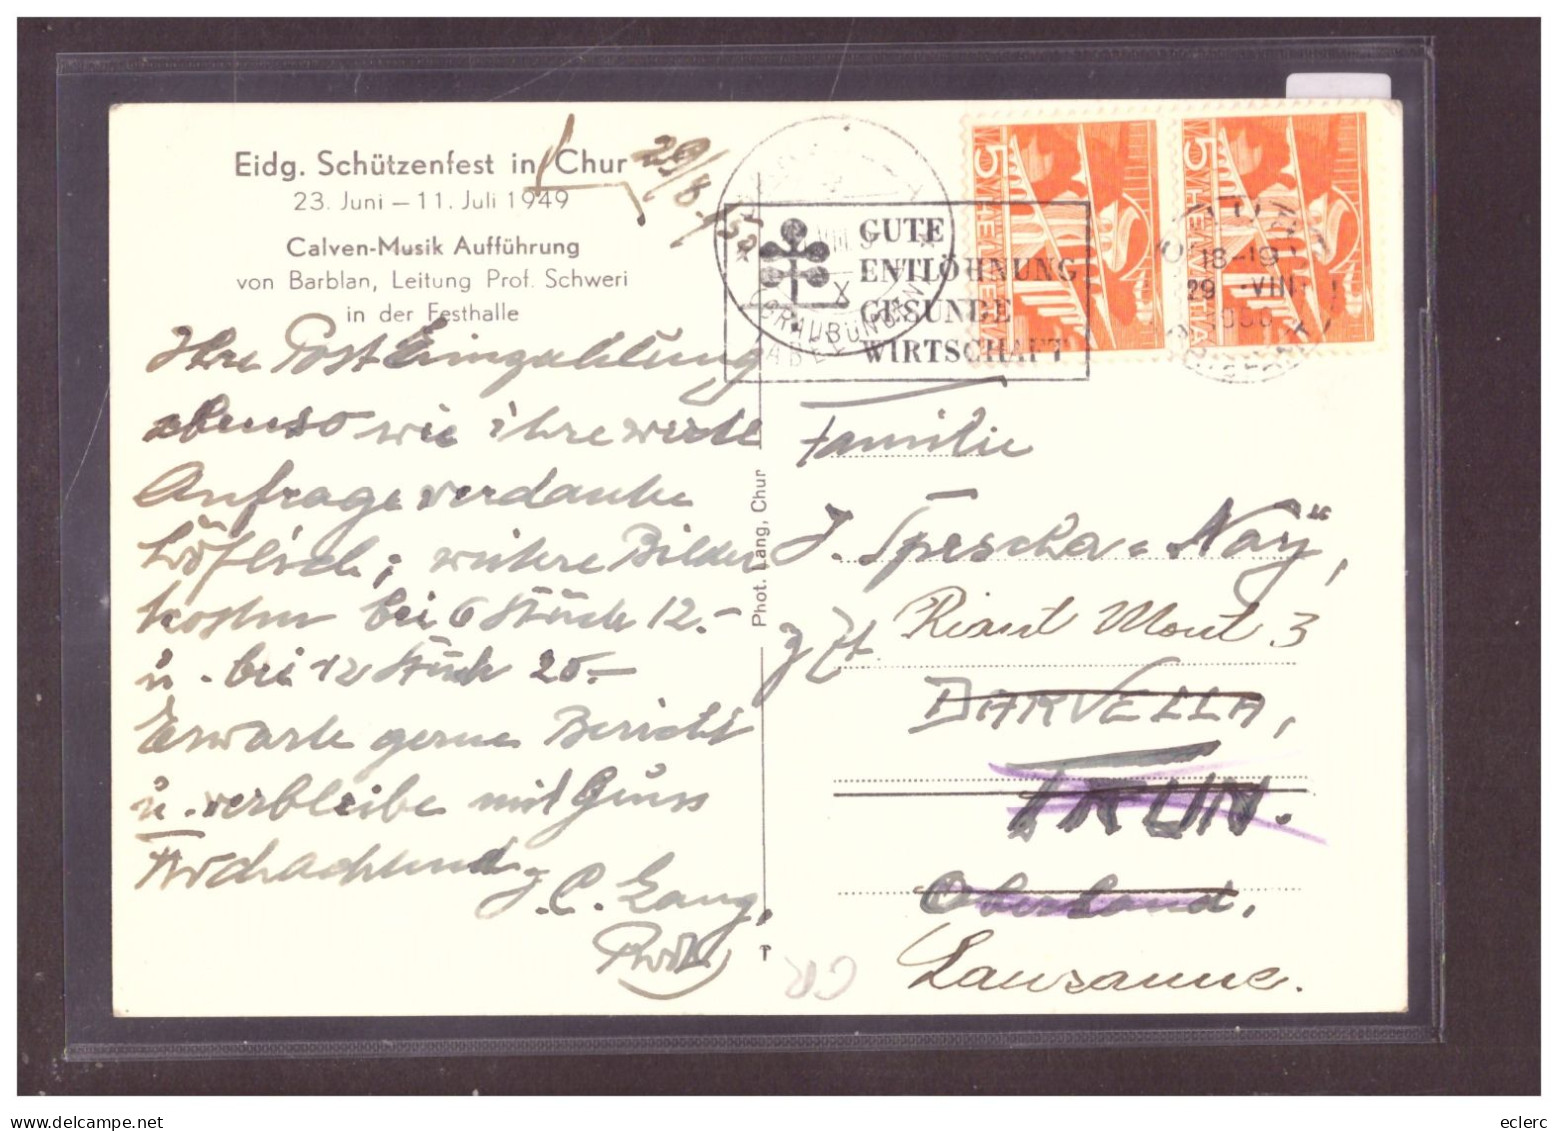 Eidg. Schützenfest in Chur
23. Juni – 11. Juli 1949
Calven-Musik Aufführung
von Barblan, Leitung Prof. Schweri
in der Festhalle
29/8.
Ihre Post Einzahlung
ebenso wie ihre werte
Anfrage verdanke
höflich; weitere Bilder
kosten bei 6 Stück 12.–
u. bei 12 Stück 20.–
Erwarte gerne Bericht
u. verbleibe mit Gruss
Hochachtend
C. Lang,
Phot. Lang, Chur
GUTE
ENTLÖHNUNG
GESUNDE
WIRTSCHAFT
(GRAUBÜNDEN)
5 HELVETIA
5 HELVETIA
18–19
29 VIII
Familie
J. Spescha-Nay,
z. Zt. Riant Mont 3
DARVELLA,
TRUN.
Oberland.
Lausanne.
GR
eclerc